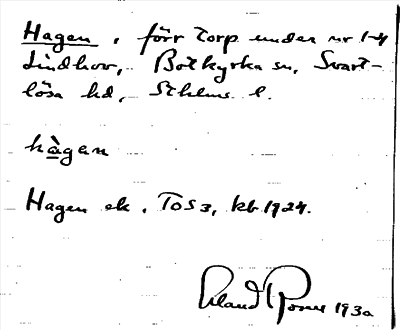 Hagen, förr torp under nr 1-4
Lindhov, Botkyrka sn, Svart-
lösa hd, Sthlms l.
hàgan
Hagen ek. TOS3, kb 1924.
Erland Rosell 1930